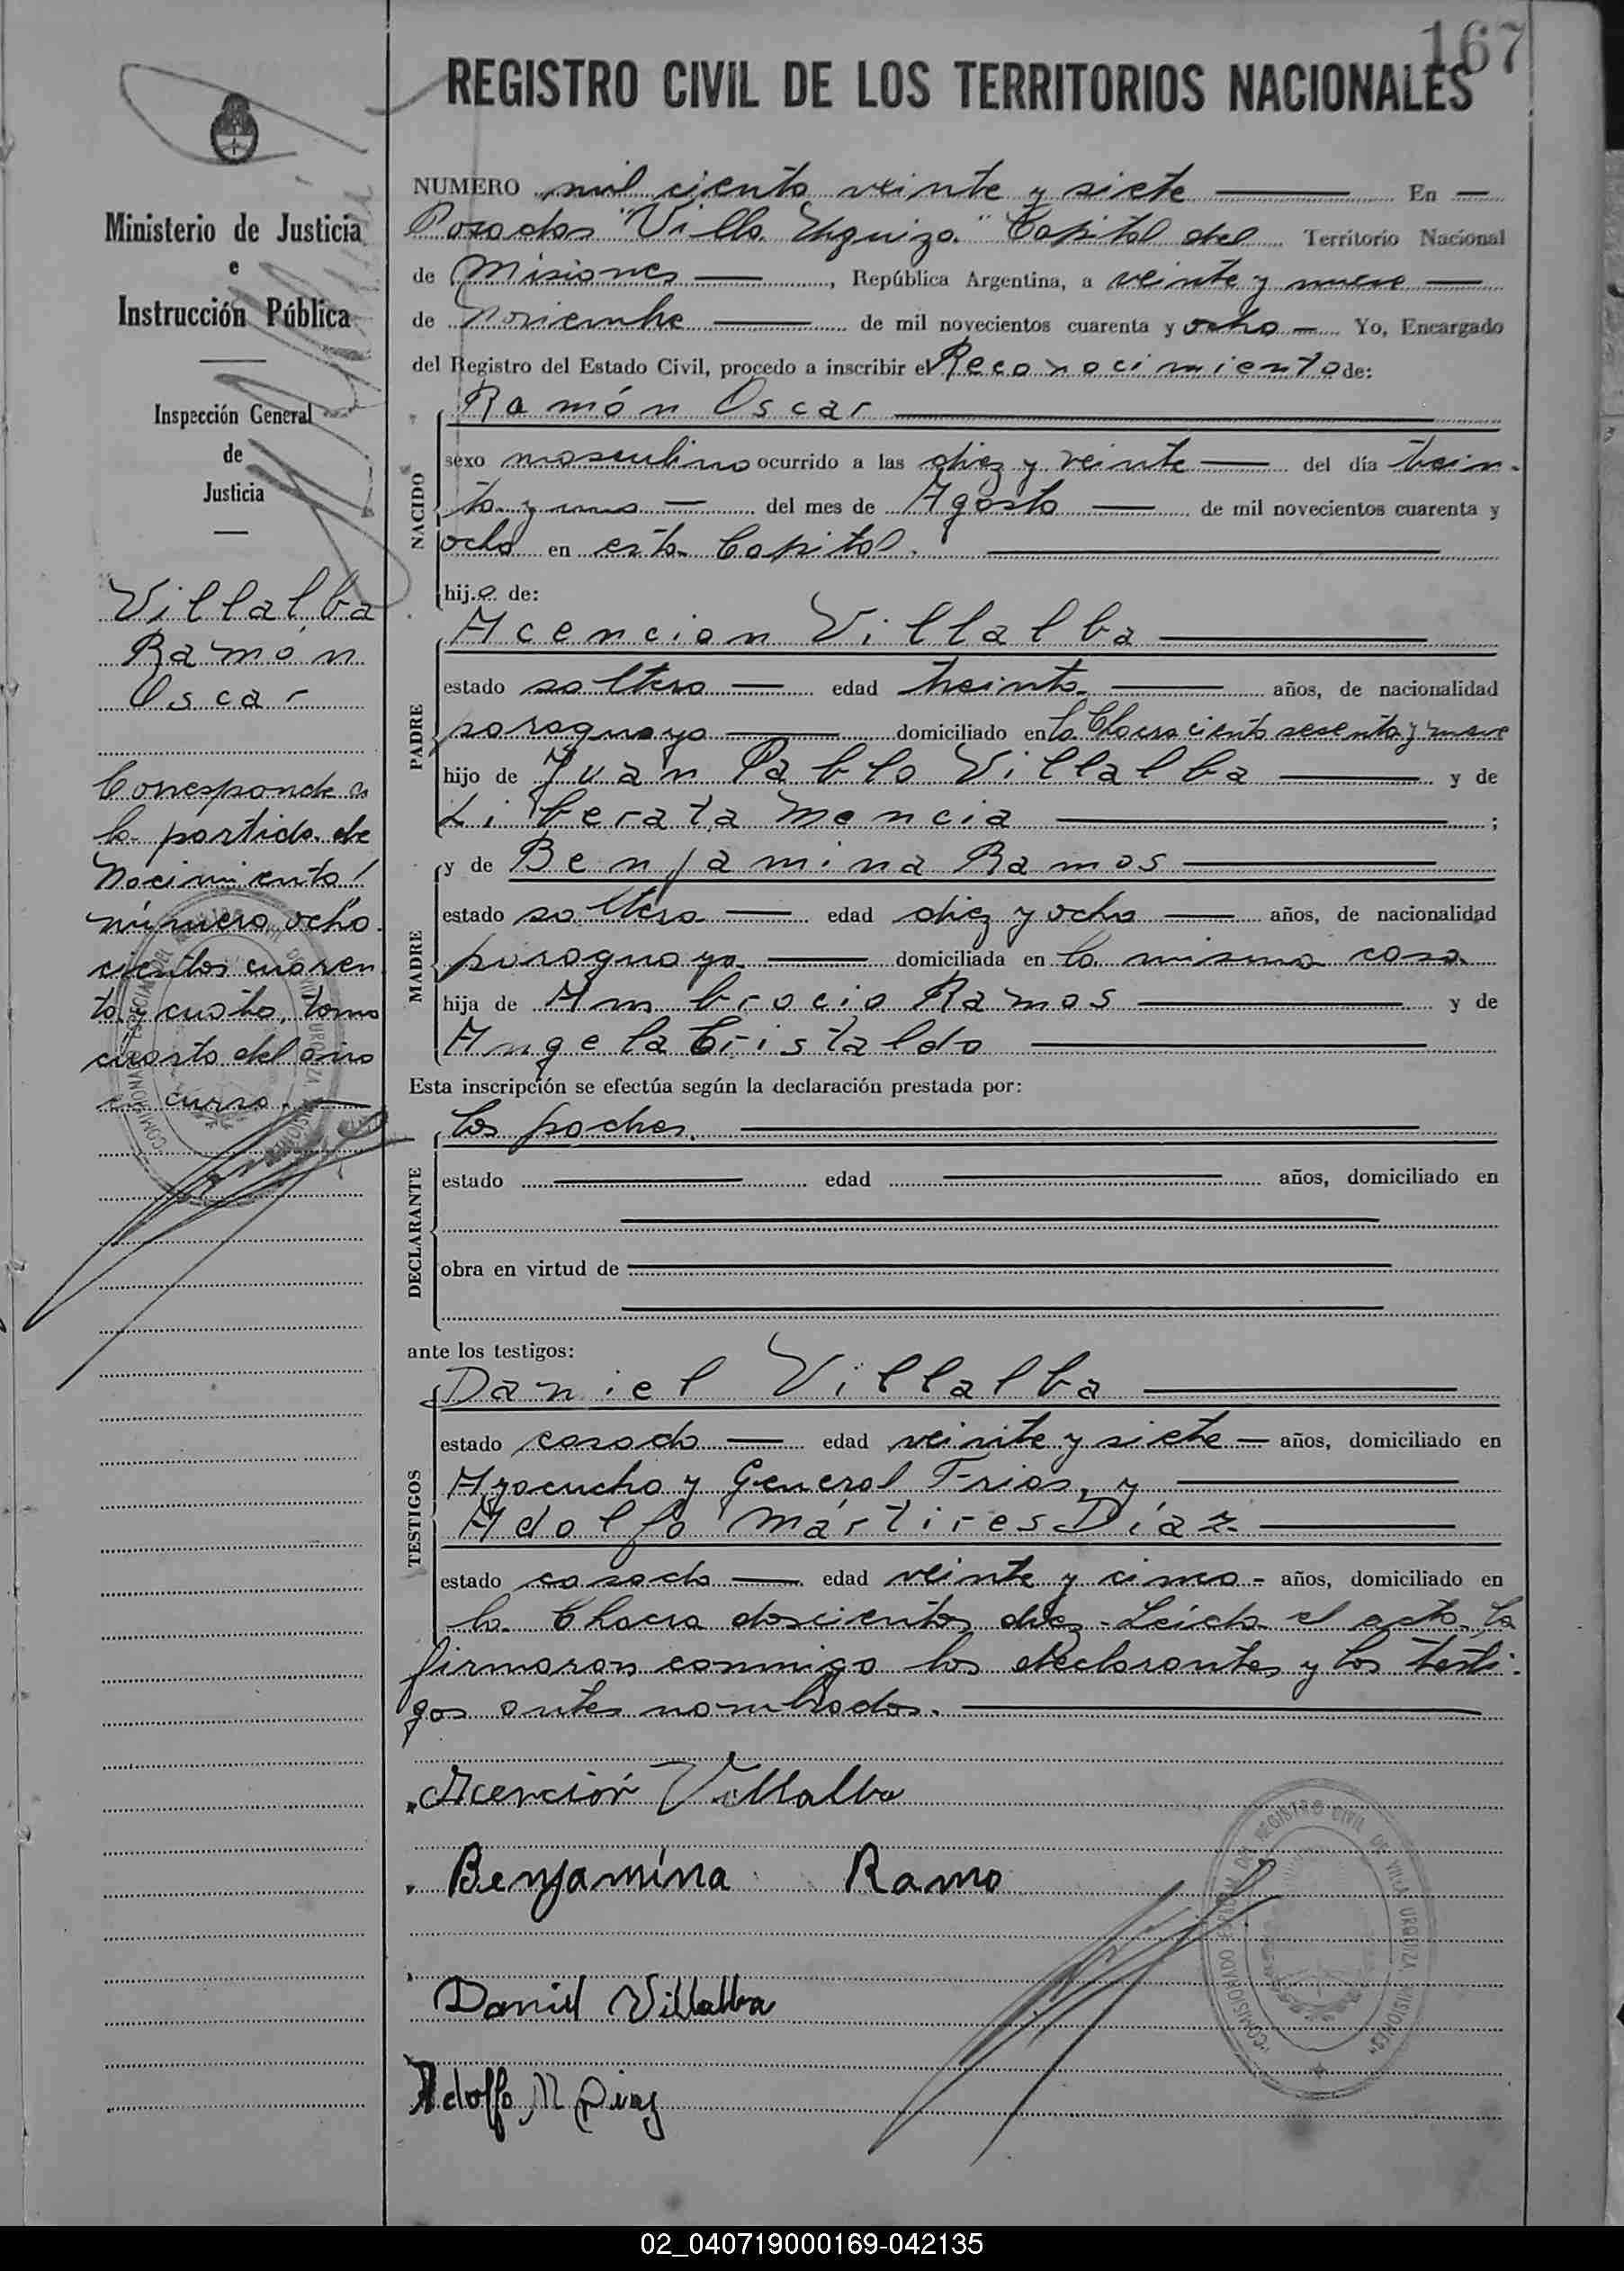 167
REGISTRO CIVIL DE LOS TERRITORIOS NACIONALES
Ministerio de Justicia
e
Instrucción Pública
Inspección General
de
Justicia
Villalba
Ramón
Oscar
Corresponde a
la partida de
Nacimiento
número ocho
cientos cuaren
ta y cuatro, tomo
cuarto del año
en curso.
NUMERO mil ciento veinte y siete En
Posadas "Villa Urquiza" Capital del Territorio Nacional
de Misiones, República Argentina, a veinte y nueve
de Noviembre de mil novecientos cuarenta y ocho Yo, Encargado
del Registro del Estado Civil, procedo a inscribir el Reconocimiento de:
NACIDO
Ramón Oscar
sexo masculino ocurrido a las diez y veinte del día trein-
ta y uno del mes de Agosto de mil novecientos cuarenta y
ocho en esta Capital.
hijo de:
PADRE
Acencion Villalba
estado soltero edad treinta años, de nacionalidad
paraguaya domiciliado en la Chacra ciento sesenta y nueve
hijo de Juan Pablo Villalba y de
Liberata Mencia ;
MADRE
y de Benjamina Ramos
estado soltera edad diez y ocho años, de nacionalidad
paraguaya domiciliada en la misma casa
hija de Ambrocio Ramos y de
Angela Cristaldo
Esta inscripción se efectúa según la declaración prestada por:
DECLARANTE
los padres.
estado edad años, domiciliado en
obra en virtud de
ante los testigos:
TESTIGOS
Daniel Villalba
estado casado edad veinte y siete años, domiciliado en
Ayacucho y General Frias, y
Adolfo Mártires Díaz
estado casado edad veinte y cinco años, domiciliado en
la Chacra doscientos diez. Leída el acta, la
firmaron conmigo los declarantes y los testi-
gos antes nombrados.
Acención Villalba
Benjamina Ramo
Daniel Villalba
Adolfo M Diaz
COMISIONADO ESPECIAL DEL REGISTRO CIVIL DE VILLA URQUIZA "MISIONES"
02_040719000169-042135